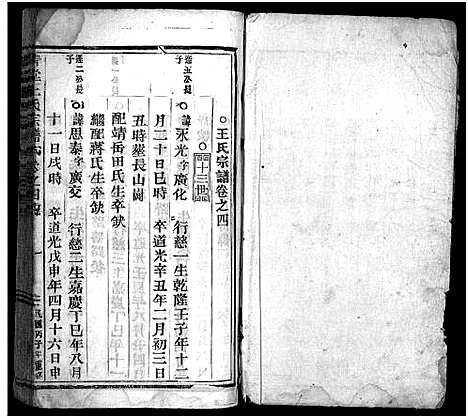 ○王氏宗譜卷之四
○十三世
遜五公長子
○諱永光字廣化　行慈一生乾隆壬子年十二
月二十日巳時　卒道光辛丑年二月初三日
丑時塟長山崗
配靖岳田氏生卒缺
繼配蔣氏生卒缺
遜二公長子
○諱思泰字廣交　行慈二生嘉慶丁巳年八月
十一日戌時　卒道光戊申年四月十六日申
王氏宗譜